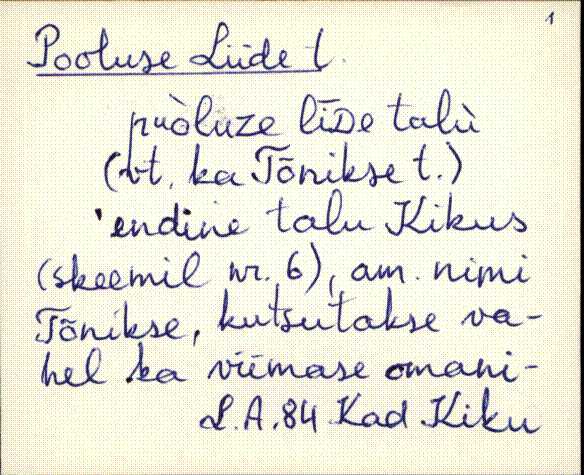 1
Pooluse Liide t.
pùoluze līDe talù
(vt. ka Tõnikse t.)
'endine talu Kikus
(skeemil nr. 6), am. nimi
Tõnikse, kutsutakse va-
hel ka viimase omani-
L.A. 84 Kad Kiku